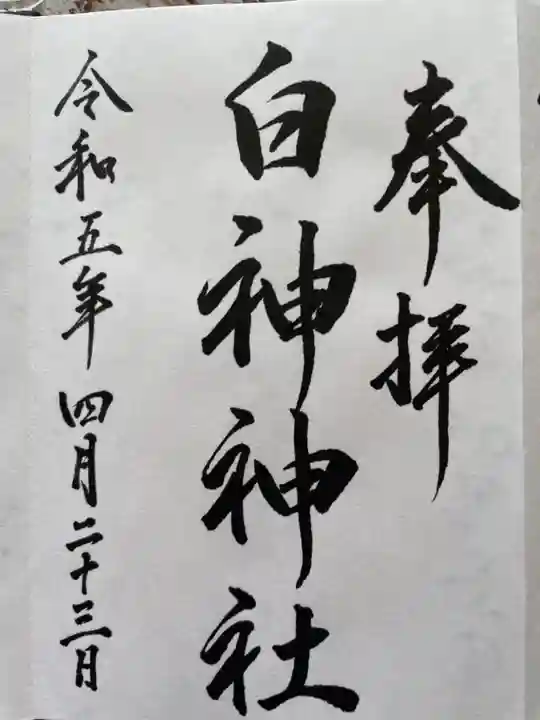 奉拝
白神神社
令和五年四月二十三日